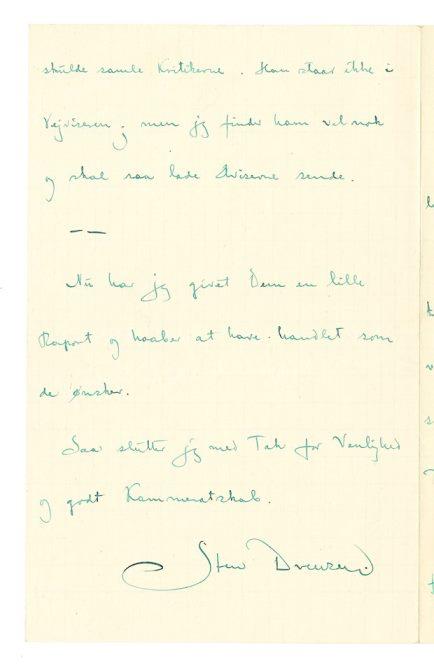 skulde samle Kritikerne. Han staar ikke i
Vejviseren; men jeg finder ham vel nok
og skal saa lade Aviserne sende.
— —
Nu har jeg givet Dem en lille
Rapport og haaber at have handlet som
de ønsker.
Saa slutter jeg med Tak for Venlighed
og godt Kammeratskab.
Sten Drewsen.